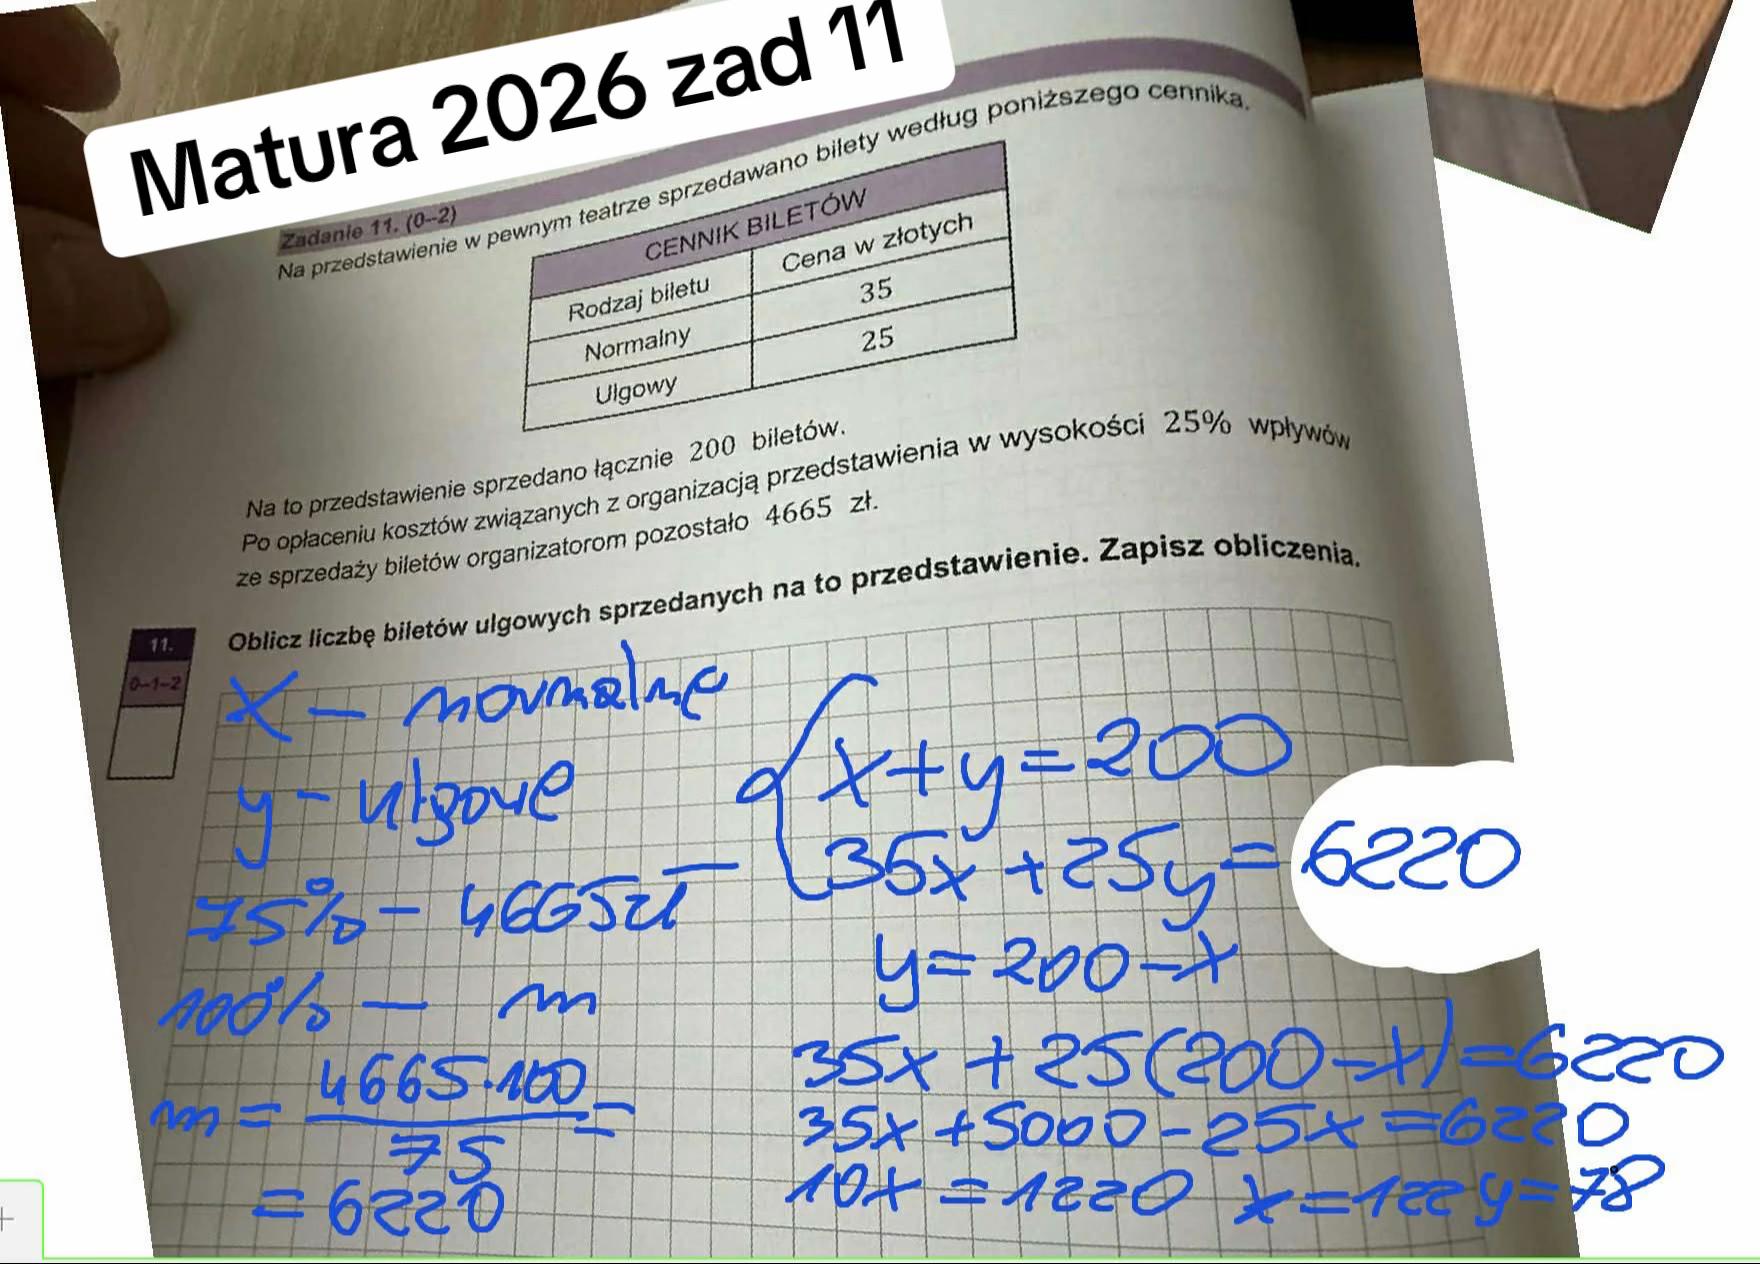 Matura 2026 zad 11
Zadanie 11. (0–2)
Na przedstawienie w pewnym teatrze sprzedawano bilety według poniższego cennika.
CENNIK BILETÓW
Rodzaj biletu Cena w złotych
Normalny 35
Ulgowy 25
Na to przedstawienie sprzedano łącznie 200 biletów.
Po opłaceniu kosztów związanych z organizacją przedstawienia w wysokości 25% wpływów
ze sprzedaży biletów organizatorom pozostało 4665 zł.
Oblicz liczbę biletów ulgowych sprzedanych na to przedstawienie. Zapisz obliczenia.
11.
0–1–2
x – normalne
y – ulgowe
75% – 4665 zł
100% – m
m = 4665·100 / 75 =
= 6220
x + y = 200
35x + 25y = 6220
y = 200 – x
35x + 25(200 – x) = 6220
35x + 5000 – 25x = 6220
10x = 1220 x = 122 y = 78